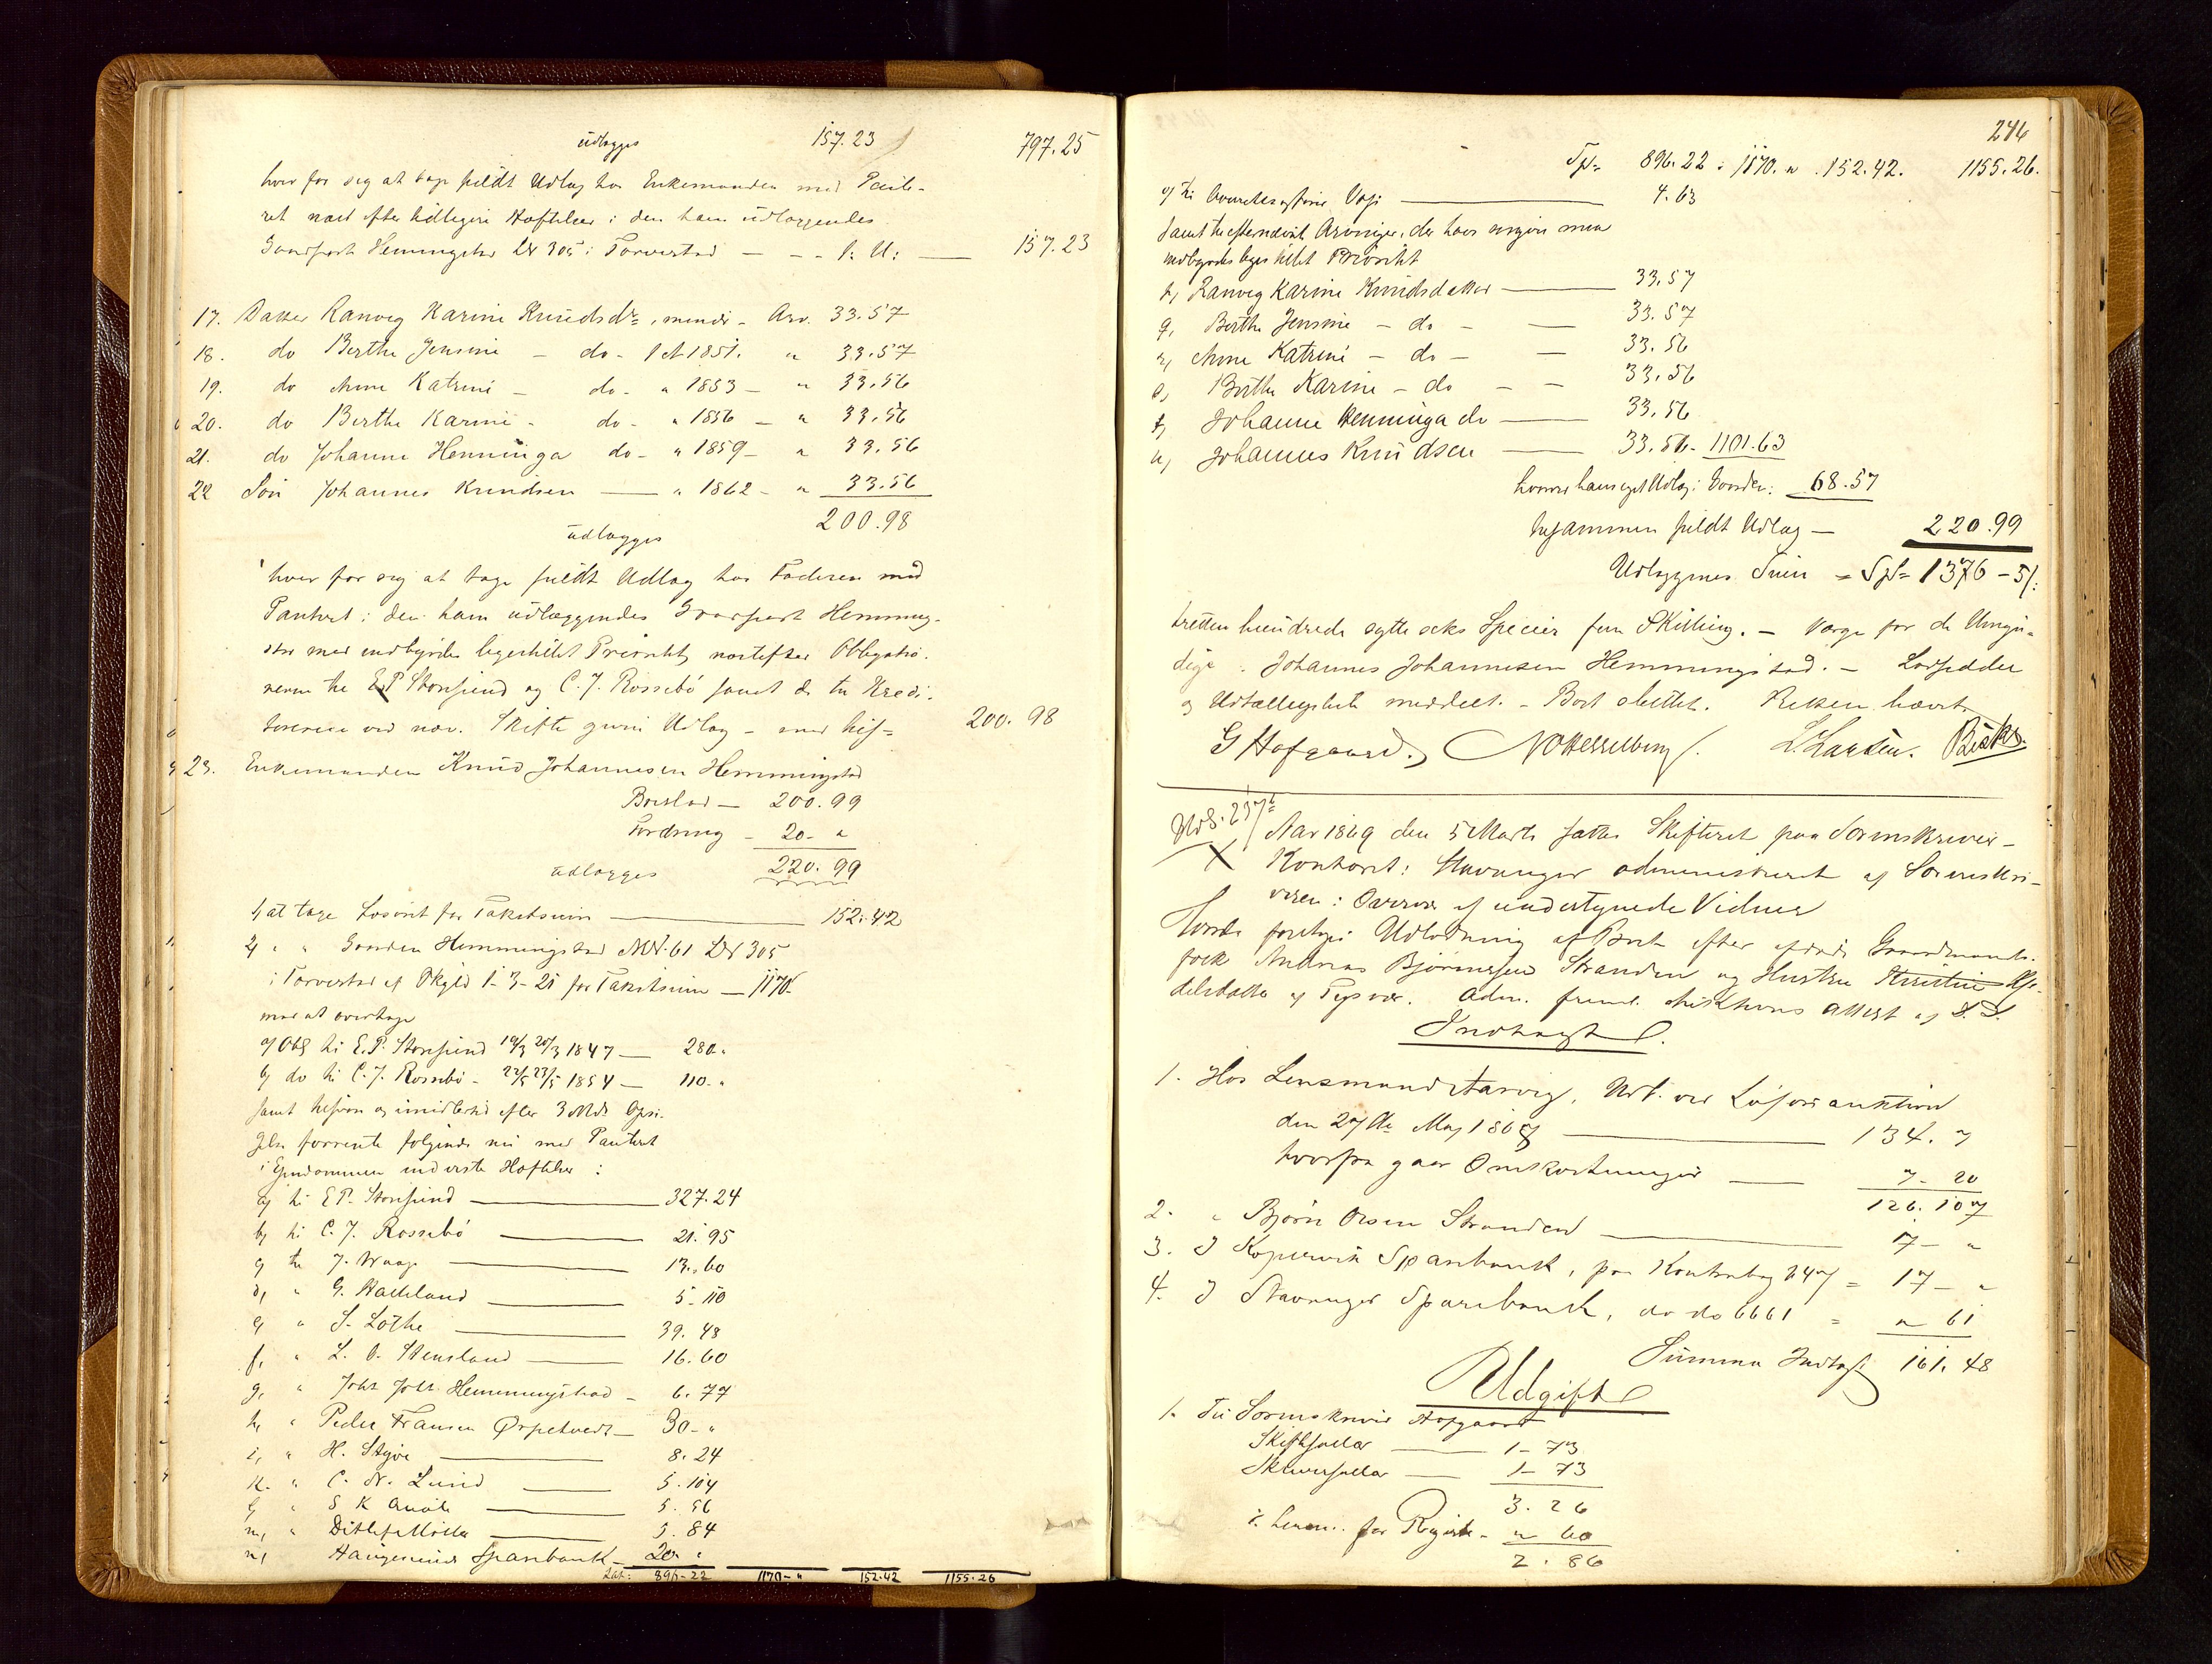 udlægges 157.23 797.25
hver for sig at tage fuldt Udlæg hos Enkemanden med Pante-
ret næst efter tidligere Hæftelser i den ham udlæggendes
Gaardpart Hemmingstad LN 305 i Torvestad — - - P: U: — 157.23
17. Datter Ranveg Karine Knudsdr, myndig - Arv. 33.57
18. do Berthe Jensine - do - f. 1851. " 33.57
19. do Anne Katrine - do - " 1853 - " 33.56
20. do Berthe Karine - do - " 1856 - " 33.56
21. do Johanne Henninga do - " 1859 - " 33.56
22 Søn Johannes Knudsen — " 1862 - " 33.56
200.98
udlægges
hver for sig at tage fuldt Udlæg hos Faderen med
Panteret i den ham udlæggendes Gaardpart Hemming-
stad med indbyrdes ligestillet Prioritet, næstefter Obligatio-
nerne til E P Storesund og C. J. Rossebö samt de til Kredi-
torerne ved nærv. Skifte givne Udlæg - 200. 98
23. Enkemanden Knud Johannesen Hemmingstad
Boeslod — 200.99
Fordring - 20 - "
udlægges 220.99
1, at tage Løsøret for Takstsum — 152.42
2, " " Gaarden Hemmingstad MN. 61 LN 305
i Torvestad af Skyld 1-3-21 for Takstsum — 1170 -
mod at overtage
a, Obl. til E. P. Storesund 19/3 20/3 1847 — 280 "
b, do til C. J. Rossebö - 22/5 23/5 1854 — 110 - "
samt helsvare og imidlertid efter 3 Mds Opsi-
gelse forrente følgende nu med Panteret
i Ejendommen indviste Hæftelser :
a, til E P. Storesund — 327.24
b, til C. J. Rossebö — 21.95
c, til J. Waage — 13.60
d, " G. Hatteland — 5-110
e, " S. Lothe — 39.48
f, " L. O. Stensland — 16.60
g, " Johs Johs. Hemmingstad - 6.77
h, " Peder Fransen Ørpetvedt — 30 - "
i, " H. Styve — 8.24
k. " C. N. Lund — 5.104
l, " S K — 5.56
m, " Ditlef Møller — 5.84
n, Haugesunds Sparebank — 20 "
Lat: 896-22 1170 - " 152.42 1155.26
246
Spd 896.22 : 1170. " . 152.42. 1155.26.
o, til 4.63
samt til efternævnte Arvinger, der have men
indbyrdes ligestillet Prioritet
p, Ranveg Karine Knudsdatter — 33.57
q, Berthe Jensine - do - — 33.57
r, Anne Katrine - do - — 33.56
s, Berthe Karine - do - - 33.56
t, Johanne Henninga do — 33.56
u, Johannes Knudsen — 33.56 - 1101.63
hvorved hans eget Udlæg i Gaarden: 68.57
tilsammen fuldt Udlæg — 220.99
Udlæggenes Sum = Spd 1376 - 5 s:
tretten hundrede sytti seks Specier fem Skilling. — Værge for de Umyn-
dige : Johannes Johannesen Hemmingstad. — Lodsedler
og Udtællingsliste meddelt. - Boet sluttet. Retten hævet.
G Hofgaard. N O Hesselberg L. Larsen.
Aar 1869 den 5 Marts sattes Skifteret paa Sorenskriver-
Kontoret i Stavanger administreret af Sorenskri-
veren i Overvær af undertegnede Vidner
Hvorda foretoges Udlodning af Boet efter afdøde Gaardmands-
folk Andreas Bjørnsen Stranden og Hustru
datter af Tysvær. Adm. freml. Attest og
Indtægt
1. Hos Lensmand Aarvig, Udb. ved Løsøreauktion
den 27de Maj 1868 — 134. 7
hvorfra gaar Omkostninger — 7 - 20
126. 107
2. " Bjørn Olsen Stranden — 17 - "
3. I Kopervik Sparebank, paa Kontrabog 247 = 17 - "
4. I Stavanger Sparebank, do do 6661 = " 61
Summa Indtægt 161. 48
Udgift
1. Til Sorenskriver Hofgaard
Skiftesallar — 1 - 73
Skriversallar — 1 - 73
3. 26
for Registr. - " 60
2. 86